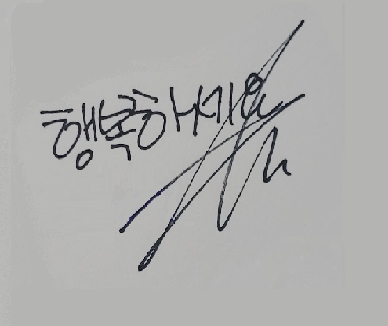 행복하세요